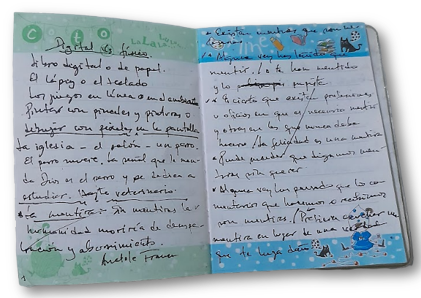 Coto
Digital vs físico
Libro digital o de papel.
El lápiz o el teclado
Los juegos en línea o en
Pintar con pinceles y pinturas o
dibujar con señales en la pantalla
La iglesia - el salón - un perro.
El perro muere. La señal que le manda
Dios es el perro y se dedica a
estudiar.
La mentira: Sin mentiras la
humanidad moriría de deses-
peración y aburrimiento.
Anatole France
Existen mentiras que
Alguna vez has tenido que
mentir / te han mentido
y lo
Es cierto que existen profesiones
u oficios en que es necesario mentir
y otras en las que nunca debe
hacerse / La felicidad es una mentira
Puede suceder que digamos men-
tiras sin querer
Alguna vez has pensado que los co-
mentarios que hacemos o recibimos
son mentiras. / Prefiero una
mentira en lugar de una verdad
que te haga daño